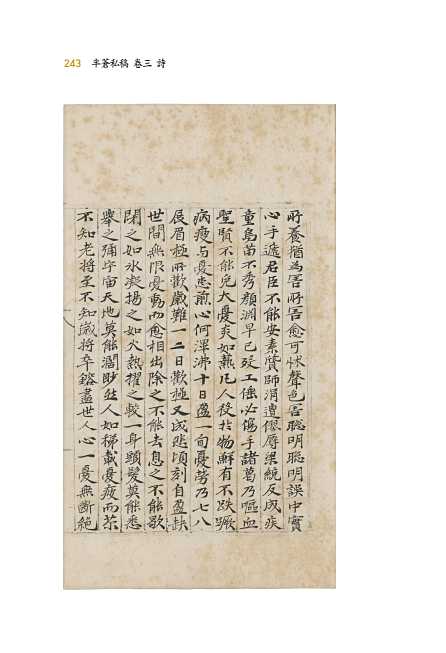 243 半蒼私稿 卷三 詩
所養猶為害所害愈可怵聲色害聰明聰明誤中實
心手遞君臣不能安素質師涓遭僇辱梁統反成疾
童烏苗不秀顏淵早已歿工倕必傷手諸葛乃嘔血
聖賢不能免大憂炎如爇凡人役於物鮮有不跌蹶
病瘦与憂患煎心何渾沸十日盈一旬憂勞乃七八
展眉極所歡歲難一二日歡極又成悲頃刻自盈缺
世間無限憂動而愈相出除之不能去息之不能歇
閉之如水凝揚之如火熱擢之較一身頭髮莫能悉
舉之彌宇宙天地莫能濶眇然人如梯載憂疲而苶
不知老將至不知歲將卒鎔盡世人心一憂無斷絕